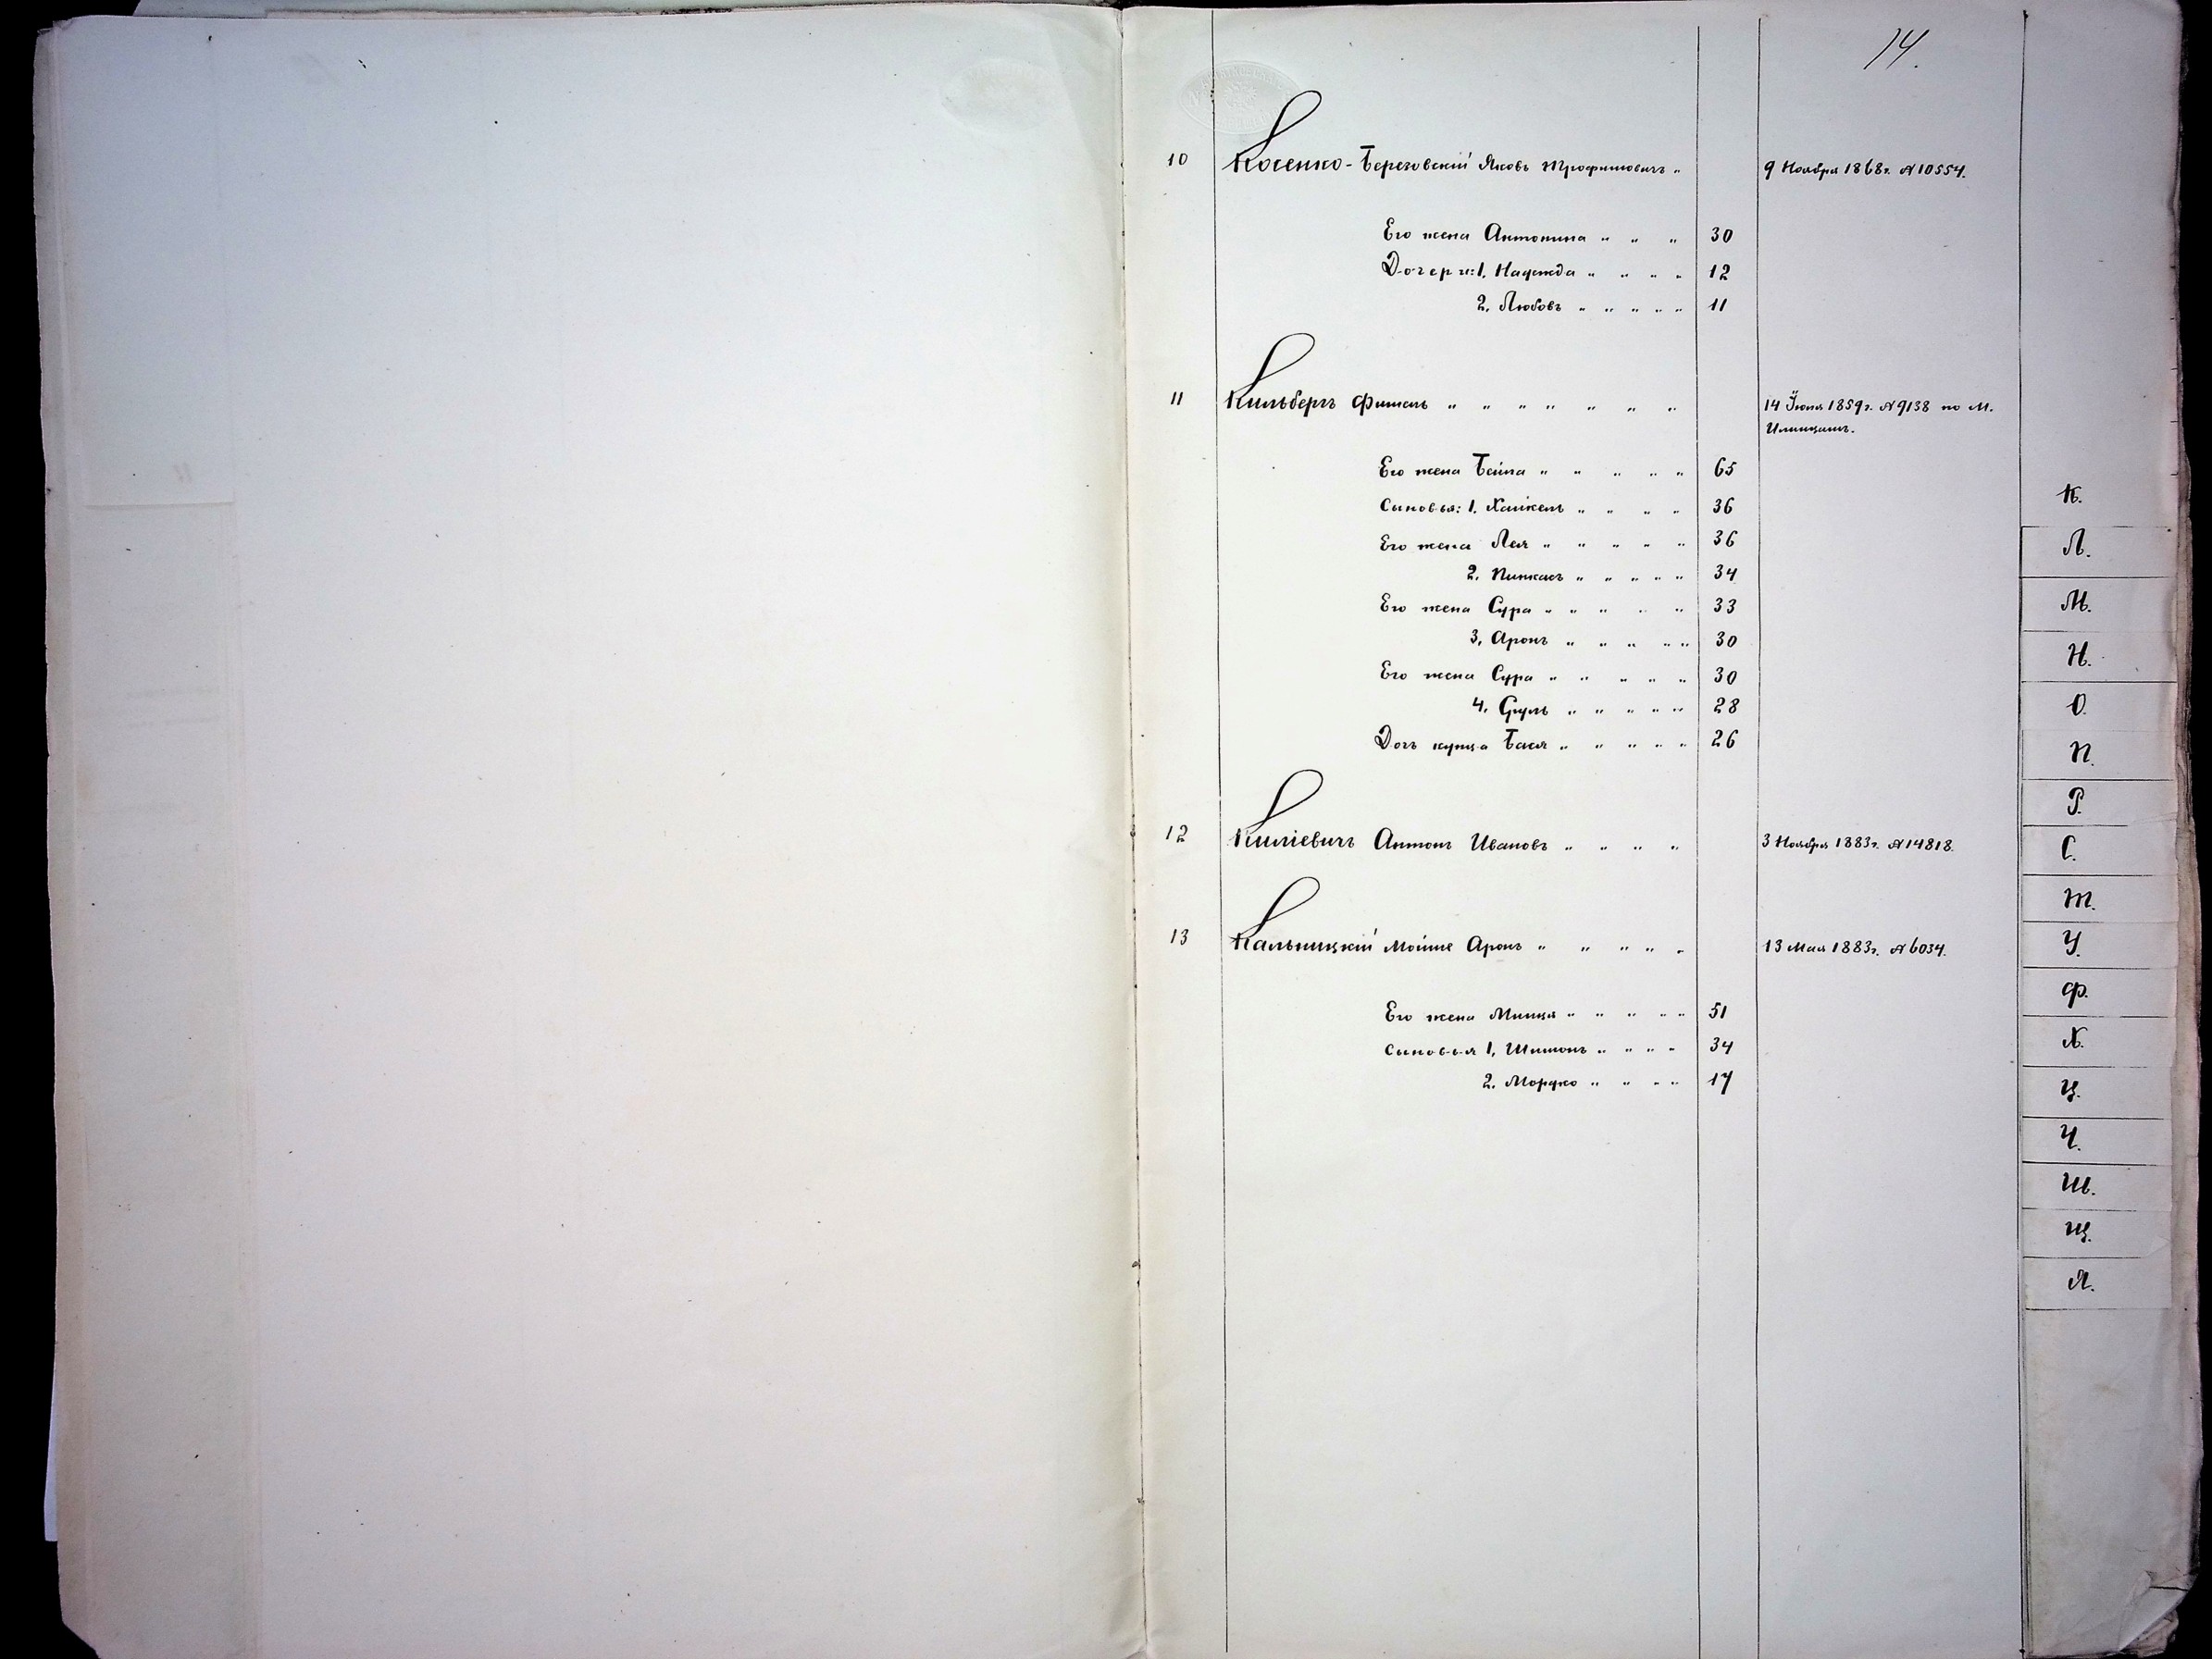 14.
10 Косенко-Березовскій Яковъ Трофимовичъ "
9 Ноября 1868г. № 10554.
Его жена Антонина " " " 30
Дочери: 1, Надежда " " " " 12
2, Любовь " " " " " 11
11 Кильбергъ Фишель " " " " " " "
14 Іюня 1859г. № 9138 по М.
Илинцамъ.
Его жена Бейла " " " " " 65
Сыновья: 1, Хайкель " " " " 36
Его жена Лея " " " " " 36
2, Пинкасъ " " " " " 34
Его жена Сура " " " " " 33
3, Аронъ " " " " " 30
Его жена Сура " " " " " 30
4, Сруль " " " " " 28
Дочь купца Бася " " " " " 26
12 Киліевичъ Антонъ Ивановъ " " " "
3 Ноября 1883г. № 14818.
13 Кальницкій Мойше Аронъ " " " " "
13 Мая 1883г. № 6034.
Его жена Минця " " " " " 51
Сыновья 1, Шимонъ " " " " 34
2, Мордко " " " " 17
К.
Л.
М.
Н.
О.
П.
Р.
С.
Т.
У.
Ф.
Х.
Ц.
Ч.
Ш.
Щ.
Я.